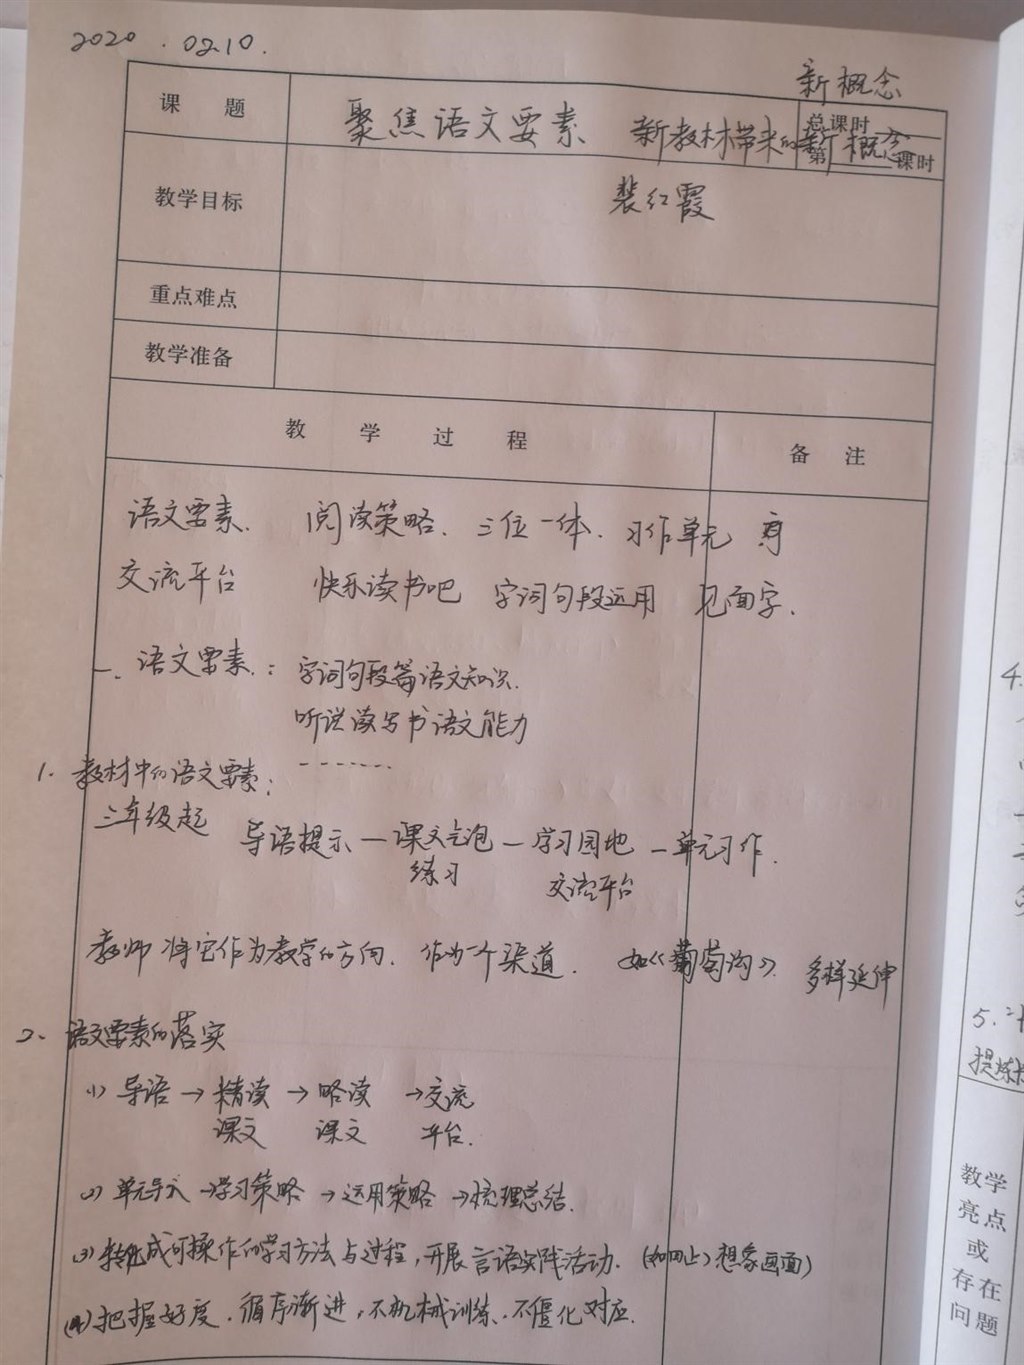 2020.02.10.
新概念
课 题 聚焦语文要素 新教材带来的新概念 总课时
第 课时
教学目标 裴红霞
重点难点
教学准备
教 学 过 程 备 注
语文要素、 阅读策略、三位一体、习作单元
交流平台 快乐读书吧 字词句段运用 见面字、
一、语文要素: 字词句段篇语文知识、
听说读写书语文能力
1、教材中的语文要素:
三年级起
导语提示—课文气泡—学习园地—单元习作.
练习 交流平台
教师将它作为教学的方向、作为一个渠道. 如《葡萄沟》. 多样延伸
2、语文要素的落实
(1) 导语→精读→略读→交流
课文 课文 平台.
(2) 单元导入→学习策略→运用策略→梳理总结.
(3) 转化成可操作的学习方法与过程,开展言语实践活动.(如四上)想象画面)
(4) 把握好度.循序渐进,不机械训练、不僵化对应.
4.
5.
提炼
教学
亮点
或
存在
问题